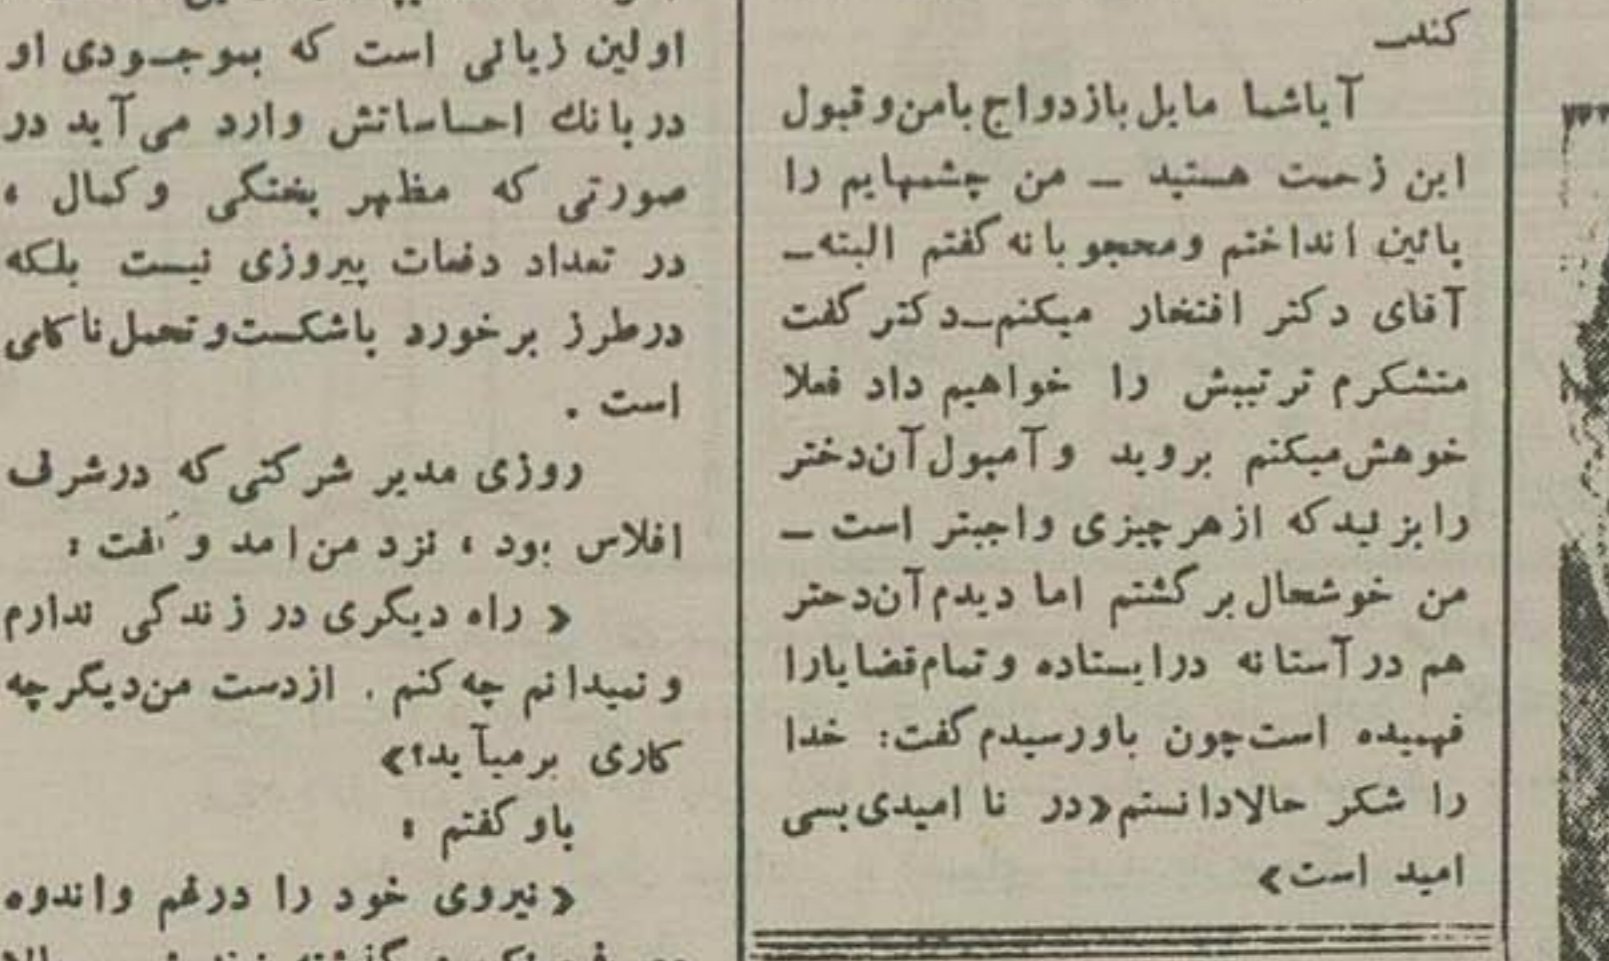 کند
آیا شما مایل بازدواج بامن و قبول
این زحمت هستید ـ من چشمهایم را
پائین انداختم و محجوبانه گفتم البته ـ
آقای دکتر افتخار میکنم ـ دکتر گفت
متشکرم ترتیبش را خواهیم داد فعلا
خوهش میکنم بروید و آمپول آن دختر
را بزنید که از هر چیزی واجبتر است ـ
من خوشحال برگشتم اما دیدم آن دختر
هم در آستانه در ایستاده و تمام قضایا را
فهمیده است چون باو رسیدم گفت: خدا
را شکر حالا دانستم «در نا امیدی بسی
امید است»
اولین زیانی است که بموجودی او
در بانك احساساتش وارد می آید در
صورتی که مظهر پختگی و کمال ،
در تعداد دفعات پیروزی نیست بلکه
در طرز برخورد باشکست و تحمل ناکامی
است .
روزی مدیر شرکتی که در شرف
افلاس بود ، نزد من امد و گفت :
« راه دیگری در زندگی ندارم
و نمیدانم چه کنم . از دست من دیگر چه
کاری برمیآید؟»
باو گفتم :
« نیروی خود را در غم و اندوه